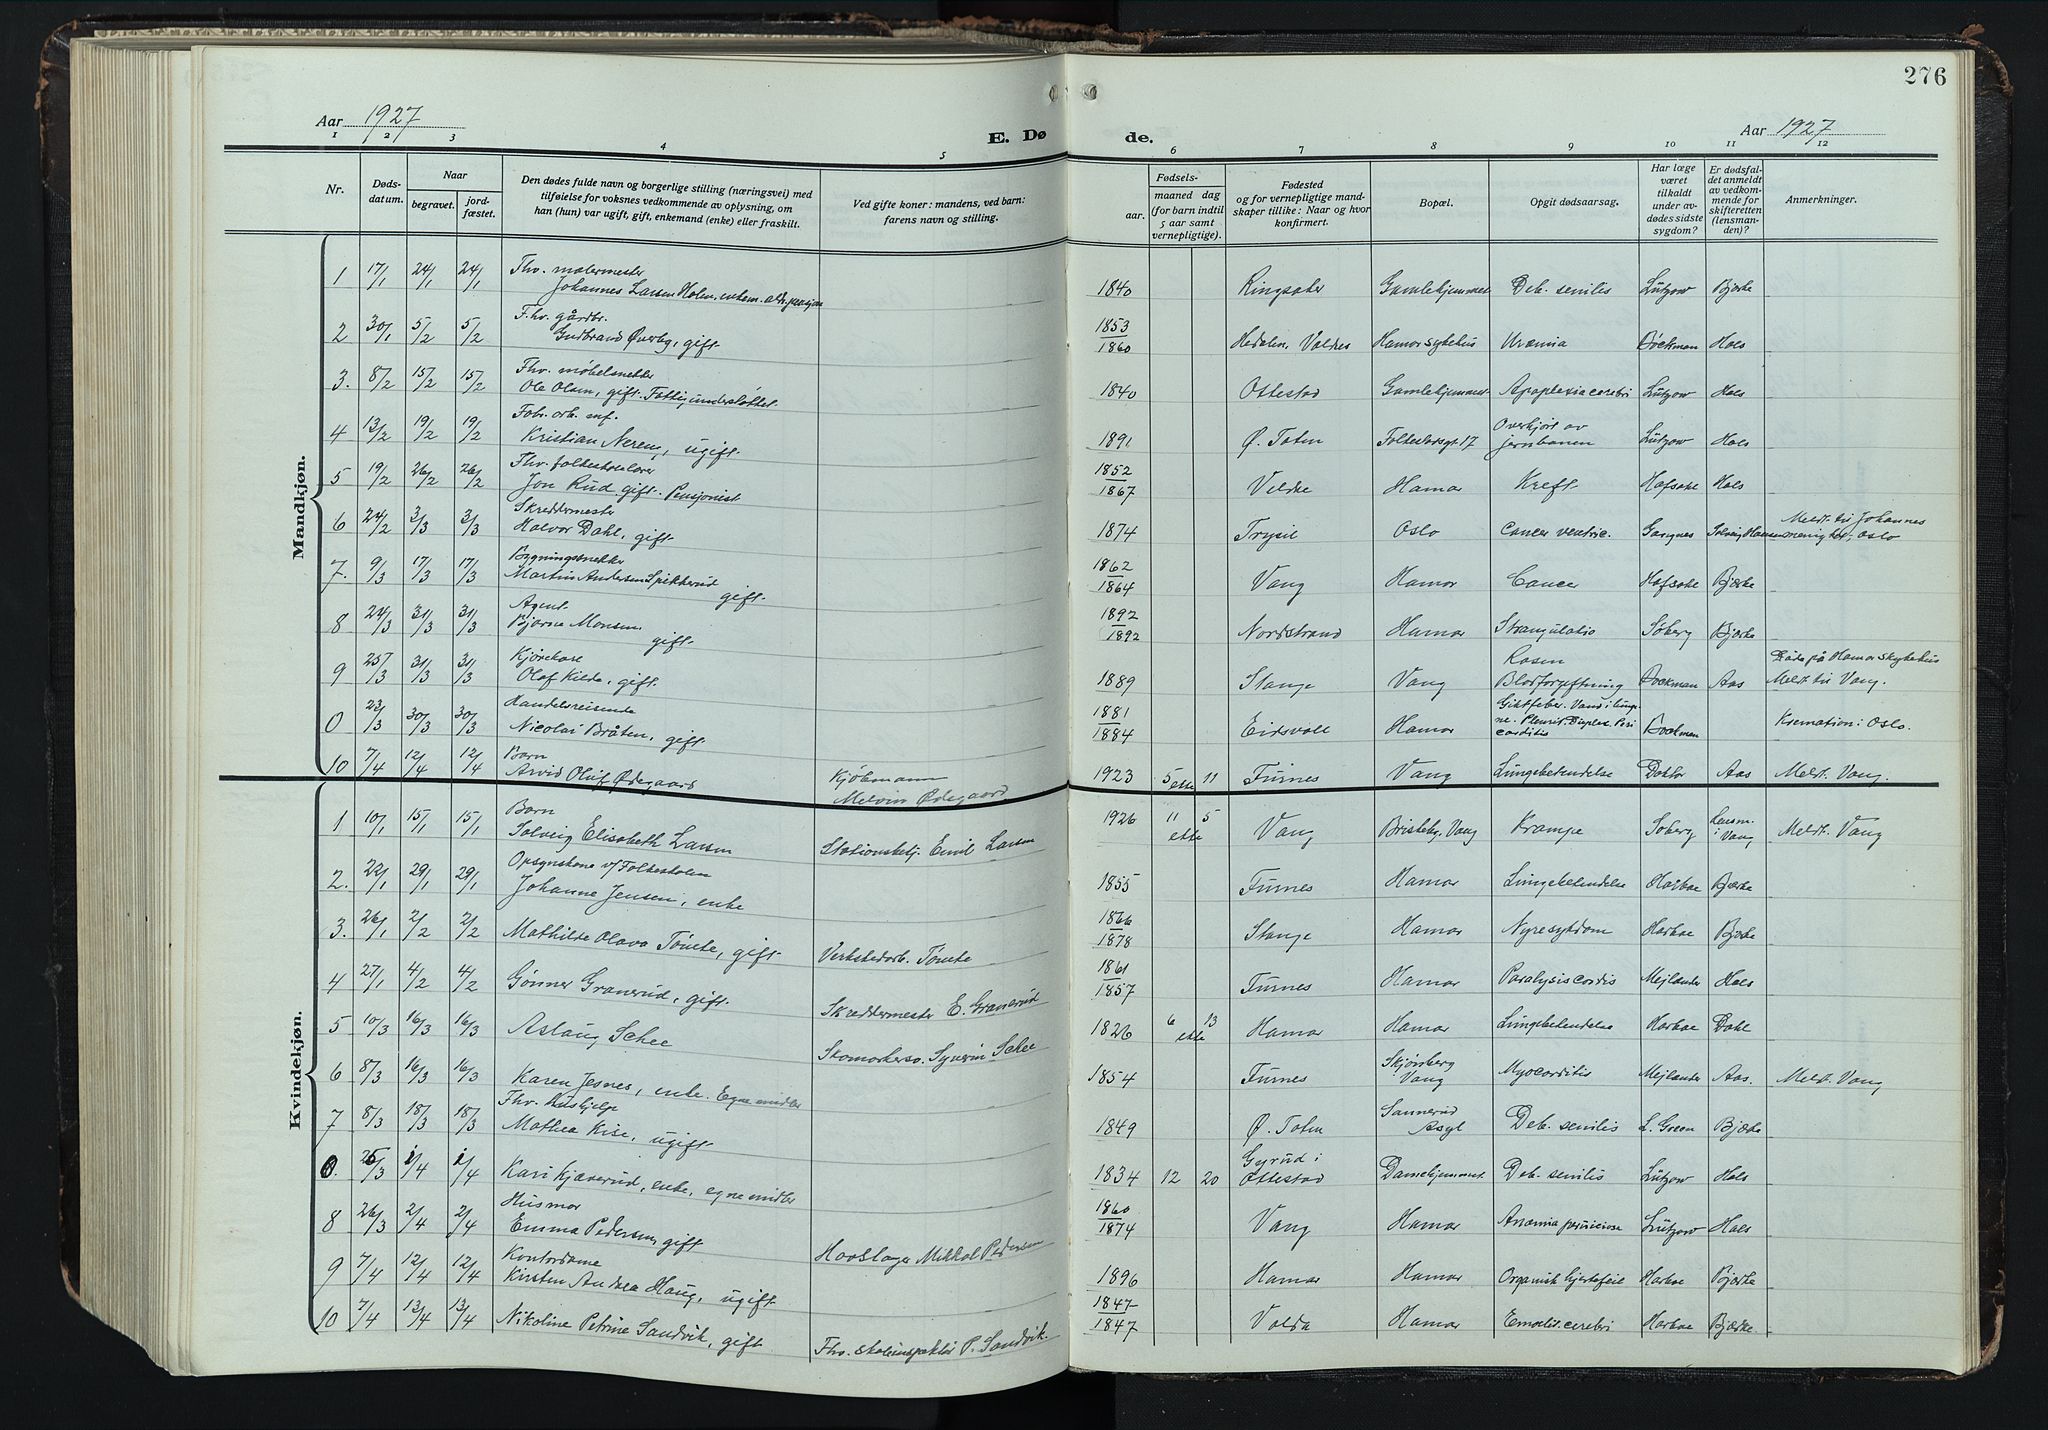 276
Aar 1927
E. Dø de.
Aar 1927
1 2 3 4 5 6 7 8 9 10 11 12
Nr.
Døds-
datum.
Naar
begravet.
jord-
fæstet.
Den dødes fulde navn og borgerlige stilling (næringsvei) med
tilføielse for voksnes vedkommende av oplysning, om
han (hun) var ugift, gift, enkemand (enke) eller fraskilt.
Ved gifte koner: mandens, ved barn:
farens navn og stilling.
Fødsels-
aar.
maaned dag
(for barn indtil
5 aar samt
vernepligtige).
Fødested
og for vernepligtige mand-
skaper tillike: Naar og hvor
konfirmert.
Bopæl.
Opgit dødsaarsag.
Har læge
været
tilkaldt
under av-
dødes sidste
sygdom?
Er dødsfal-
det anmeldt
av vedkom-
mende for
skifteretten
(lensman-
den)?
Anmerkninger.
Mandkjøn.
1 17/1 24/1 24/1 Fhv. malermester
Johannes Larsen Holm, enkem. 1840 Ringsaker Gamlehjemmet Deb. senilis Lützow Bjerke
2 30/1 5/2 5/2 F.hv. gårdbr.
Gudbrand Øverby, gift. 1853
1860 Hedalen, Valdres Hamar sykehus Uræmia Bockman Hals
3. 8/2 15/2 15/2 Fhv. møbelsnekker
Ole Olsen, gift. Fattigunderstøttet 1840 Ottestad Gamlehjemmet Apoplexia cerebri Lützow Hals
4 13/2 19/2 19/2 Fabr. arb. mf.
Kristian Nereng, ugift. 1891 Ø. Toten Folkestadsgt 17 Overkjørt av
jernbanen Lützow Hals
5 19/2 26/2 26/2 Fhv. folkeskolelærer
Jon Rud, gift. Pensjonist 1852
1867 Veldre Hamar Kreft Hals
6 24/2 3/3 3/3 Skreddermester
Halvor Dahl, gift. 1874 Trysil Oslo Cancer ventric. Meldt til Johannes
menighet, Oslo
7. 9/3 17/3 17/3 Bygningssnekker
Martin Andersen Spikkerud gift. 1862
1864 Vang Hamar Cancer Bjerke
8 24/3 31/3 31/3 Agent.
Bjarne Monsen, gift. 1892
1892 Nordstrand Hamar Strangulatio Søberg Bjerke
9 25/3 31/3 31/3 Kjørekar
Olaf Kilde, gift. 1889 Stange Vang Rosen
Blodforgiftning Bockman Aas Døde på Hamar sykehus
Meldt til Vang.
0 23/3 30/3 30/3 Handelsreisende
Nicolai Bråten, gift. 1881
1884 Eidsvoll Hamar Giktfeber. Vand i lunge-
ne. Pleurit. Duplex. Peri
carditis Bockman Kremation i Oslo.
10 7/4 12/4 12/4 Barn
Arvid Oluf Ødegaard Kjøbmann
Melvin Ødegaard 1923 5 ekte 11 Furnes Vang Lungebetendelse Doktor Aas Meldt. Vang.
Kvindekjøn.
1 10/1 15/1 15/1 Barn
Solveig Elisabeth Larsen Stationsbetj. Emil Larsen 1926 11 5 ekte Vang Bristeby, Vang Krampe Søberg Lensm.
i
Vang Meldt. Vang
2. 22/1 29/1 29/1 Opsynskone v/ Folkeskolen
Johanne Jensen, enke 1855 Furnes Hamar Lungebetendelse Harboe Bjerke
3. 26/1 2/2 2/2 Mathilde Olava Tønete, gift. Verkstedarb. Tønete 1866
1878 Stange Hamar Nyresykdom Harboe Bjerke
4 27/1 4/2 4/2 Gønner Granerud, gift. Skreddermester E. Granerud 1861
1857 Furnes Hamar Paralysis cordis Mejlænder Hals
5 10/3 16/3 16/3 Aslaug Schee Skomakersv. Syverin Schee 1826 6 13 ekte Hamar Hamar Lungebetendelse Harboe Dahl
6 8/3 16/3 16/3 Karen Jesnes, enke. Egne midler 1854 Furnes Skjønsberg
Vang Myocarditis Mejlænder Aas. Meldt. Vang
7 8/3 18/3 18/3 Fhv. Hushjelp
Mathea Kise, ugift 1849 Ø. Toten Sannerud
Asyl Deb. senilis L. Green Bjerke
0. 25/3 1/4 1/4 Kari Kjæverud, enke, egne midler 1834 12 20 Gyrud i
Ottestad Damehjemmet Deb. senilis Lützow Hals
8 26/3 2/4 2/4 Husmor
Emma Pedersen, gift Hovslager Mikkal Pedersen 1860
1874 Vang Hamar Anæmia perniciose Lützow Hals
9 7/4 12/4 12/4 Kontordame
Kirsten Andrea Haug, ugift. 1896 Hamar Hamar Organisk hjertefeil Harboe Bjerke
10 7/4 13/4 13/4 Nikoline Petrine Sandvik, gift Fhv. skoleinspektør P. Sandvik. 1847
1847 Volda Hamar Harboe Bjerke.